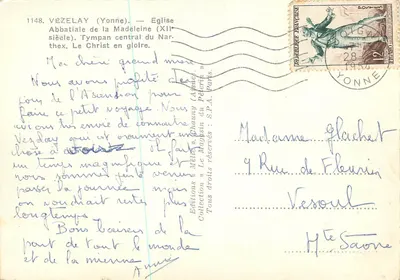 1148. VÉZELAY (Yonne). — Eglise
Abbatiale de la Madeleine (XIIe
siècle). Tympan central du Nar-
thex. Le Christ en gloire.
Ma chère grand mère
Nous avons profité du
jour de l'Ascension pour
faire ce petit voyage. Nous
avions envie de connaitre
Vezelay qui est vraiment une
chose à voir
un temps magnifique et
nous sommes venus
passer la journée
on voudrait rester plus
longtemps.
Bons baisers de la
part de tout le monde
et de la mienne
Annie
Collection « Le Magasin du Pèlerin »
Tous droits réservés — S.P.A. Paris
YONNE
Madame Glachet
9 Rue de Fleurier
Vesoul
Hte Saone